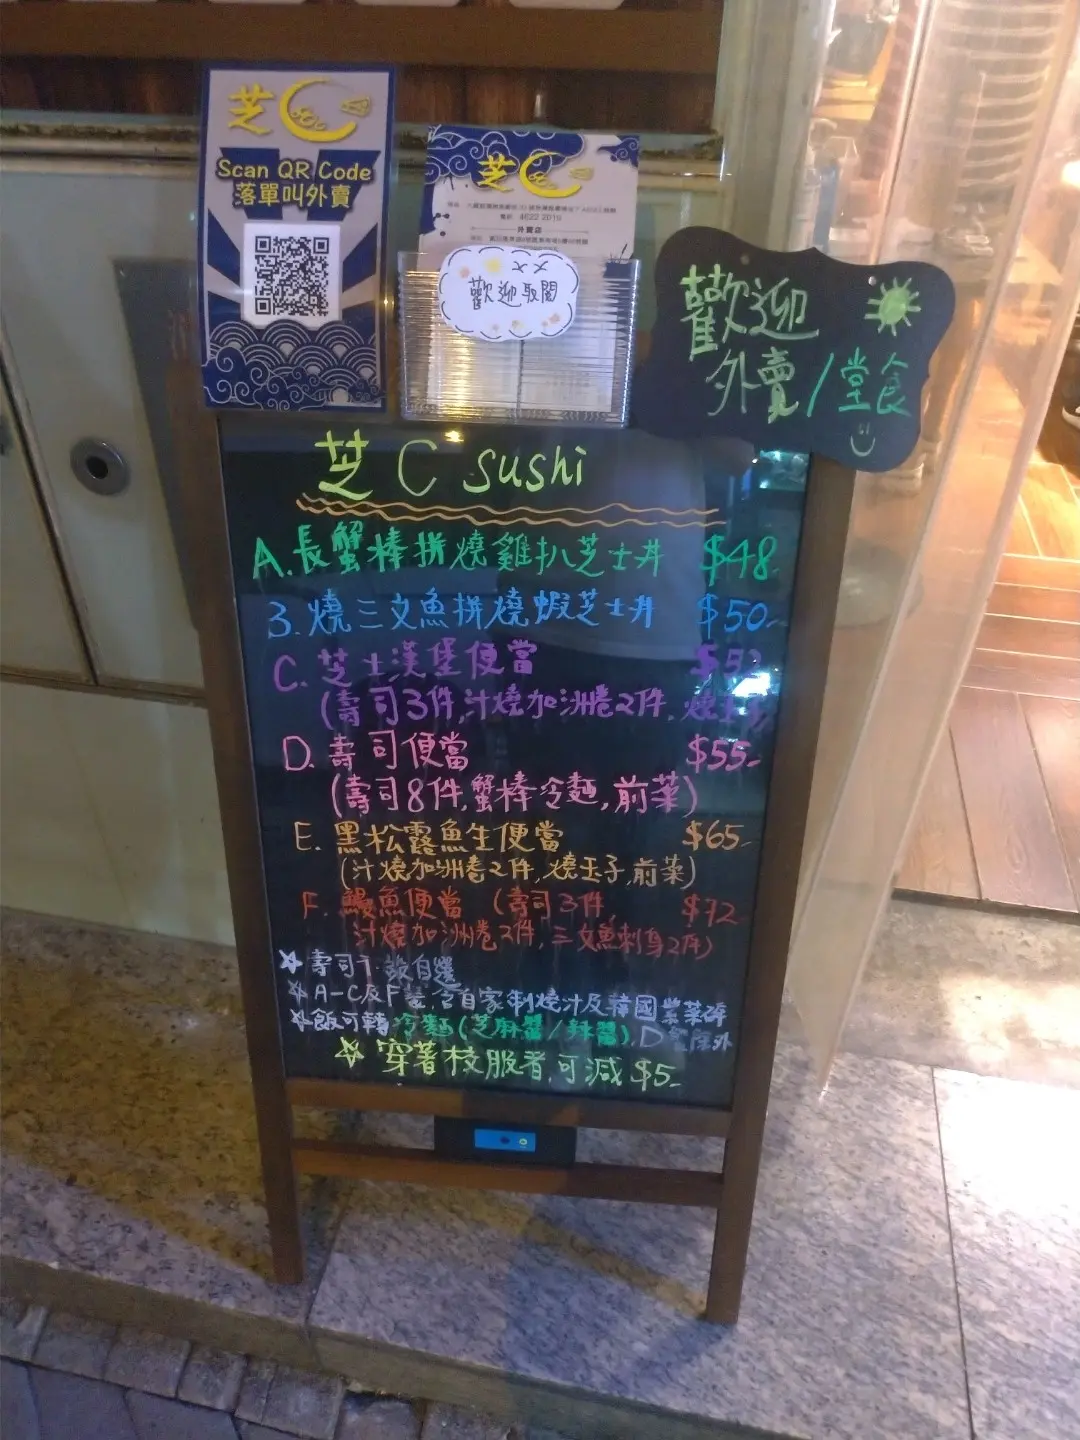 芝C
Scan QR Code
落單叫外賣
芝C
電話: 4622 2010
外賣店
歡迎取閱
歡迎
外賣/堂食
芝C sushi
A. 長蟹棒拼燒雞扒芝士丼 $48-
3. 燒三文魚拼燒蝦芝士丼 $50-
C. 芝士漢堡便當
(壽司3件,汁燒加洲卷2件,
D. 壽司便當 $55-
(壽司8件,蟹棒冷麵,前菜)
E. 黑松露魚生便當 $65-
(汁燒加洲卷2件,燒玉子,前菜)
F. 鰻魚便當 (壽司3件 $72
汁燒加洲卷2件,三文魚刺身2件)
☆壽司不設自選
☆A-C及F 自家制燒汁及韓國紫菜碎
☆飯可轉冷麵(芝麻醬/辣醬),D 除外
☆穿著校服者,可減$5-